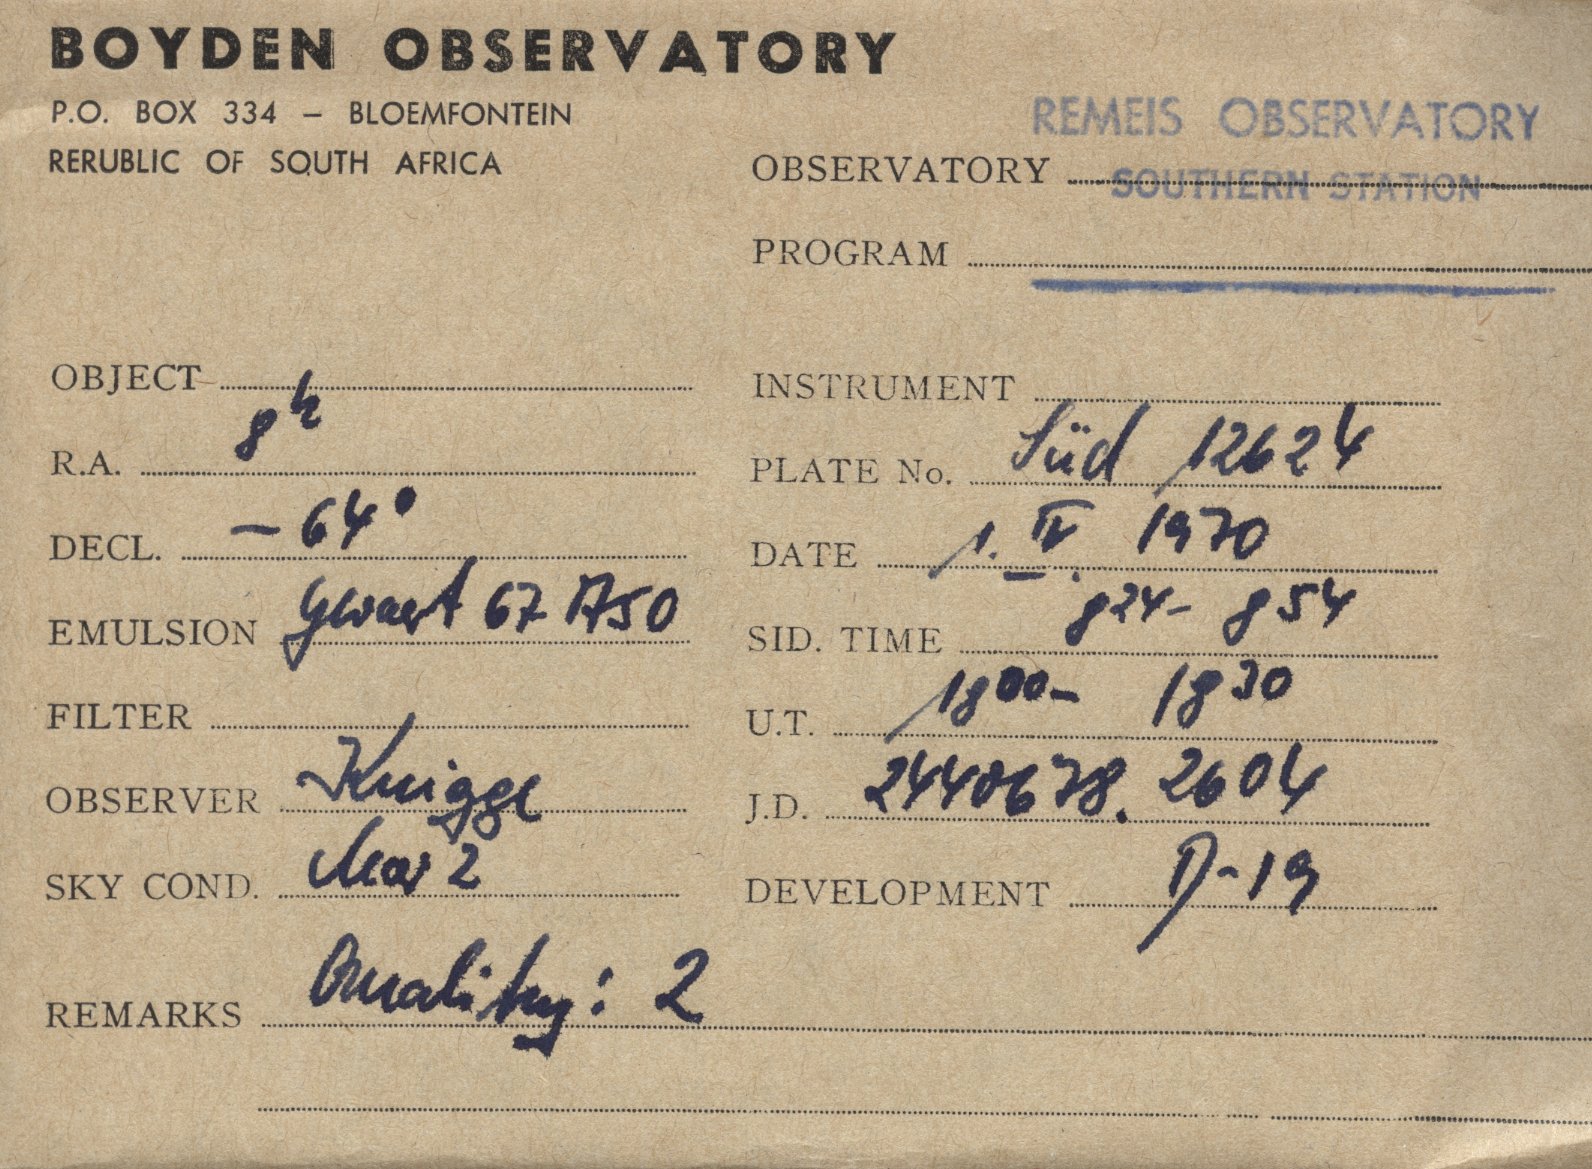 BOYDEN OBSERVATORY
P.O. BOX 334 – BLOEMFONTEIN
RERUBLIC OF SOUTH AFRICA
REMEIS OBSERVATORY
OBSERVATORY SOUTHERN STATION
PROGRAM
OBJECT
R.A. 8h
DECL. – 64°
EMULSION Gevaert 67 A50
FILTER
OBSERVER Knigge
SKY COND. clear 2
INSTRUMENT
PLATE No. Süd 12624
DATE 1. IV. 1970
SID. TIME 8 24 – 8 54
U.T. 18 00 – 18 30
J.D. 2440678.2604
DEVELOPMENT D-19
REMARKS Quality: 2